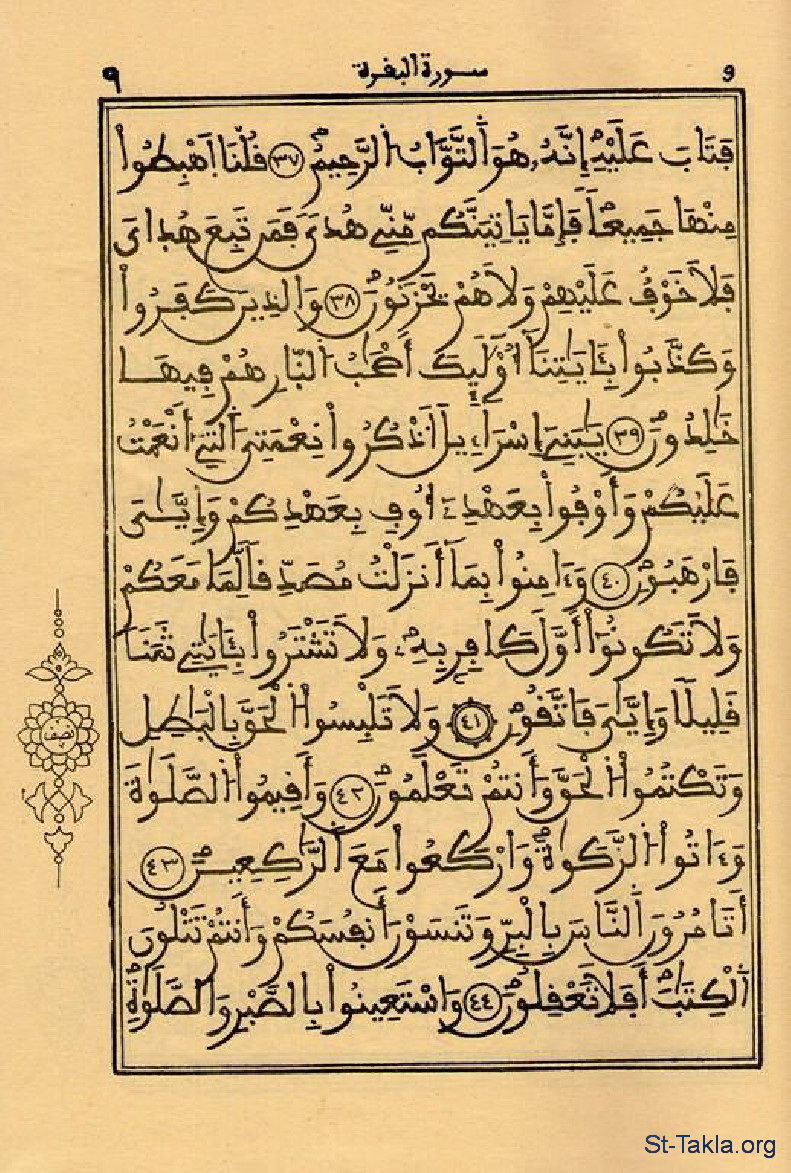 9 سورة البقرة ٩
فَتَابَ عَلَيْهِ إِنَّهُ هُوَ اَلتَّوَّابُ اُلرَّحِيمُ ٣٧ قُلْنَا اَهْبِطُواْ
مِنْهَا جَمِيعاً فَإِمَّا يَاتِيَنَّكُم مِّنِّي هُدىً فَمَن تَبِعَ هُدَايَ
فَلَا خَوْفٌ عَلَيْهِمْ وَلَا هُمْ يَحْزَنُونَ ٣٨ وَالذِينَ كَفَرُواْ
وَكَذَّبُواْ بِـَٔايَٰتِنَا أُوْلَٰٓئِكَ أَصْحَٰبُ اُلنَّارِ هُمْ فِيهَا
خَٰلِدُونَ ٣٩ يَٰبَنِي إِسْرَآءِيلَ اَذْكُرُواْ نِعْمَتِيَ اَلتِي أَنْعَمْتُ
عَلَيْكُمْ وَأَوْفُواْ بِعَهْدِيَ أُوفِ بِعَهْدِكُمْ وَإِيَّٰيَ
فَارْهَبُونِ ٤٠ وَءَامِنُواْ بِمَا أَنزَلْتُ مُصَدِّقاً لِّمَا مَعَكُمْ
وَلَا تَكُونُواْ أَوَّلَ كَافِرٍ بِهِ وَلَا تَشْتَرُواْ بِـَٔايَٰتِي ثَمَناً
قَلِيلًا وَإِيَّٰيَ فَاتَّقُونِ ٤١ وَلَا تَلْبِسُواْ اُلْحَقَّ بِالْبَٰطِلِ
وَتَكْتُمُواْ اُلْحَقَّ وَأَنتُمْ تَعْلَمُونَ ٤٢ وَأَقِيمُواْ اُلصَّلَوٰةَ
وَءَاتُواْ اُلزَّكَوٰةَ وَارْكَعُواْ مَعَ اَلرَّٰكِعِينَ ٤٣
أَتَامُرُونَ اَلنَّاسَ بِالْبِرِّ وَتَنسَوْنَ أَنفُسَكُمْ وَأَنتُمْ تَتْلُونَ
اَلْكِتَٰبَ أَفَلَا تَعْقِلُونَ ٤٤ وَاسْتَعِينُواْ بِالصَّبْرِ وَالصَّلَوٰةِ
نصف
St-Takla.org